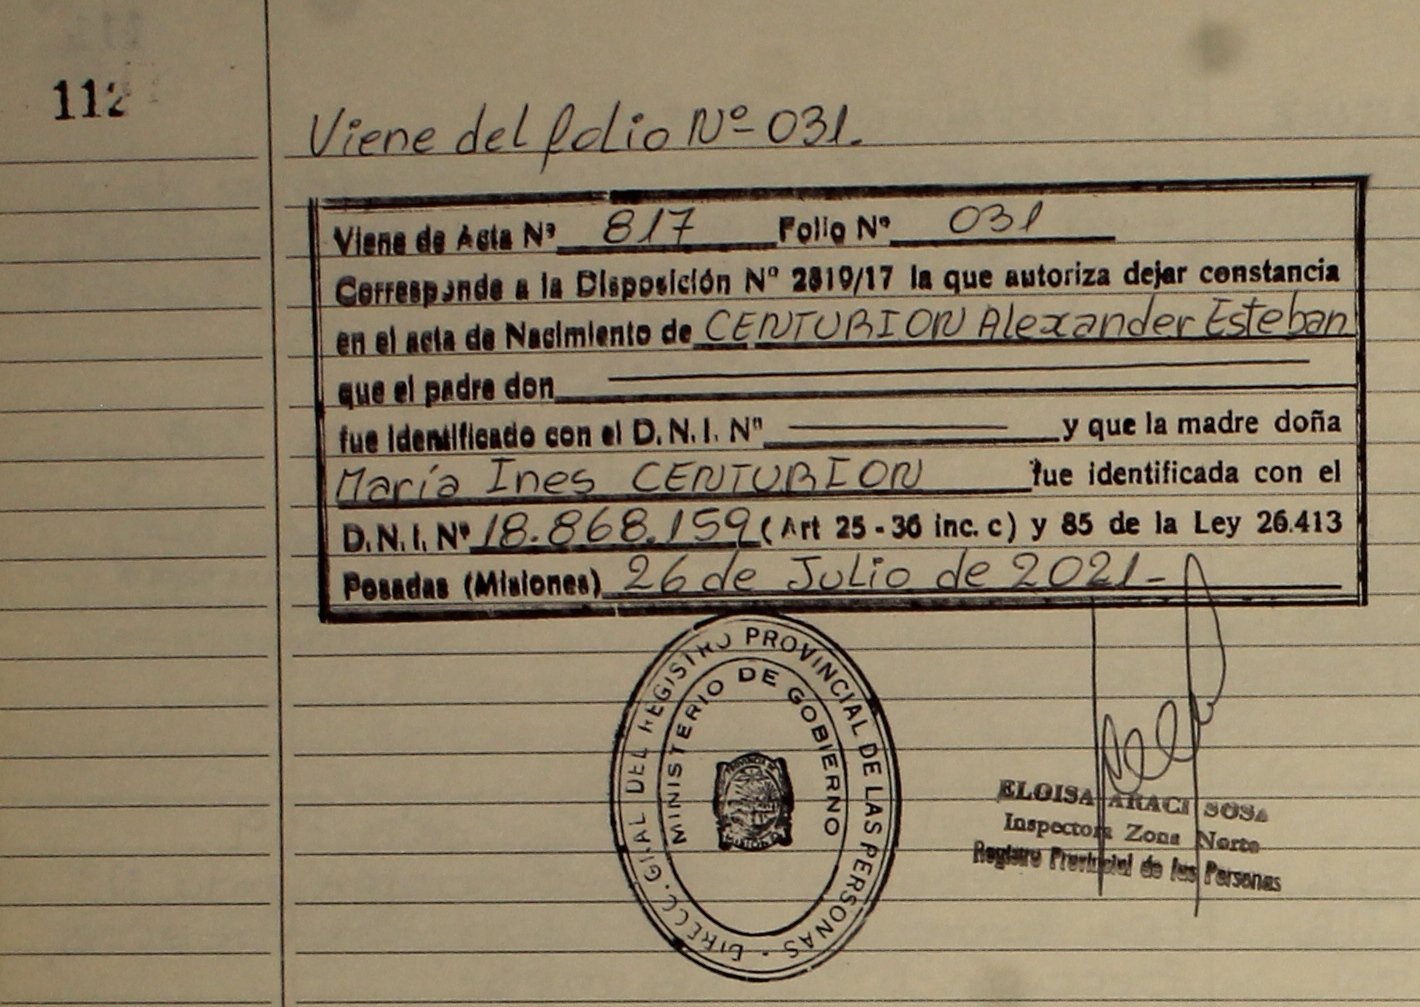 112
Viene del folio Nº 031.
Viene de Acta Nº 817 Folio Nº 031
Corresponde a la Disposición Nº 2819/17 la que autoriza dejar constancia
en el acta de Nacimiento de CENTURION Alexander Esteban
que el padre don
fue identificado con el D.N.I. Nº y que la madre doña
María Ines CENTURION fue identificada con el
D.N.I. Nº 18.868.159 (Art 25 - 36 inc. c) y 85 de la Ley 26.413
Posadas (Misiones) 26 de Julio de 2021-
DIRECC. GRAL DEL REGISTRO PROVINCIAL DE LAS PERSONAS
MINISTERIO DE GOBIERNO
ELOISA ARACI SOSA
Inspectora Zona Norte
Registro Provincial de las Personas